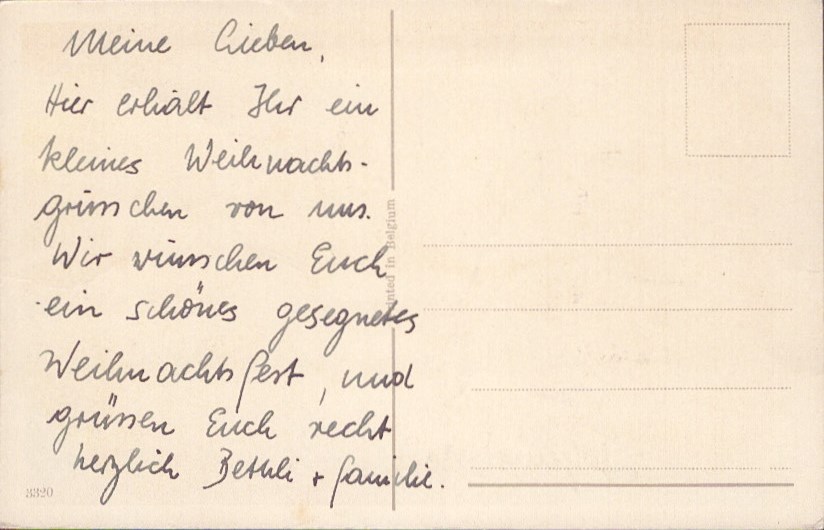 Meine Lieben,
Hier erhält Ihr ein
kleines Weihnachts-
grüsschen von uns.
Wir wünschen Euch
ein schönes gesegnetes
Weihnachtsfest, und
grüssen Euch recht
herzlich Bethli + Familie.
Printed in Belgium
3320